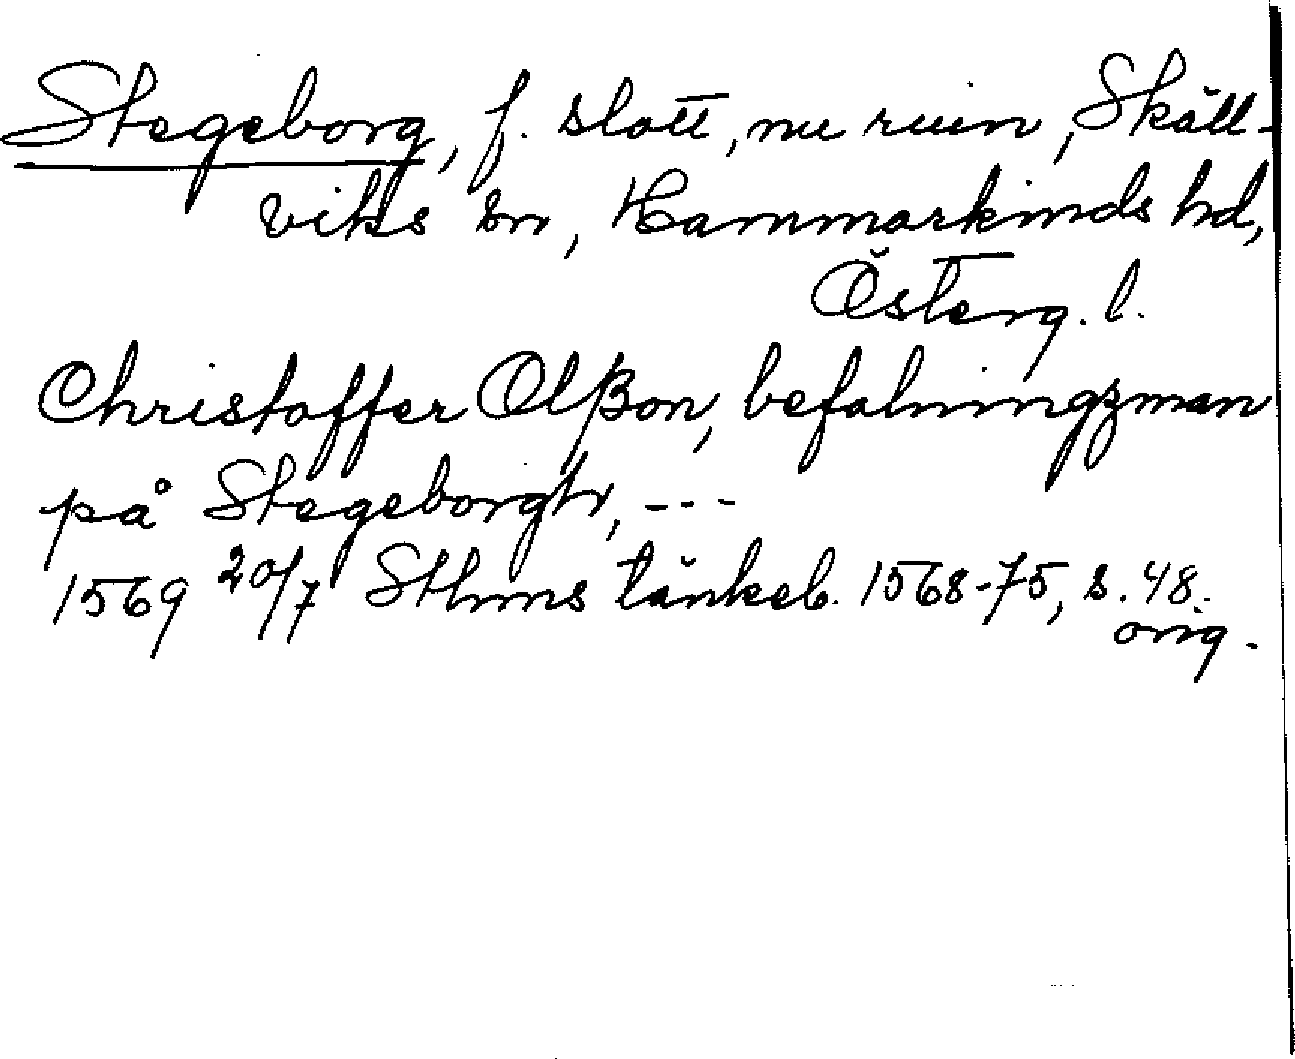 Stegeborg, f. slott, nu ruin, Skäll-
viks sn, Hammarkinds hd,
Österg. l.
Christoffer Olßon, befalningzman
på Stegeborgh, ---
1569 20/7 Sthms tänkeb. 1568-75, s. 48.
orig.